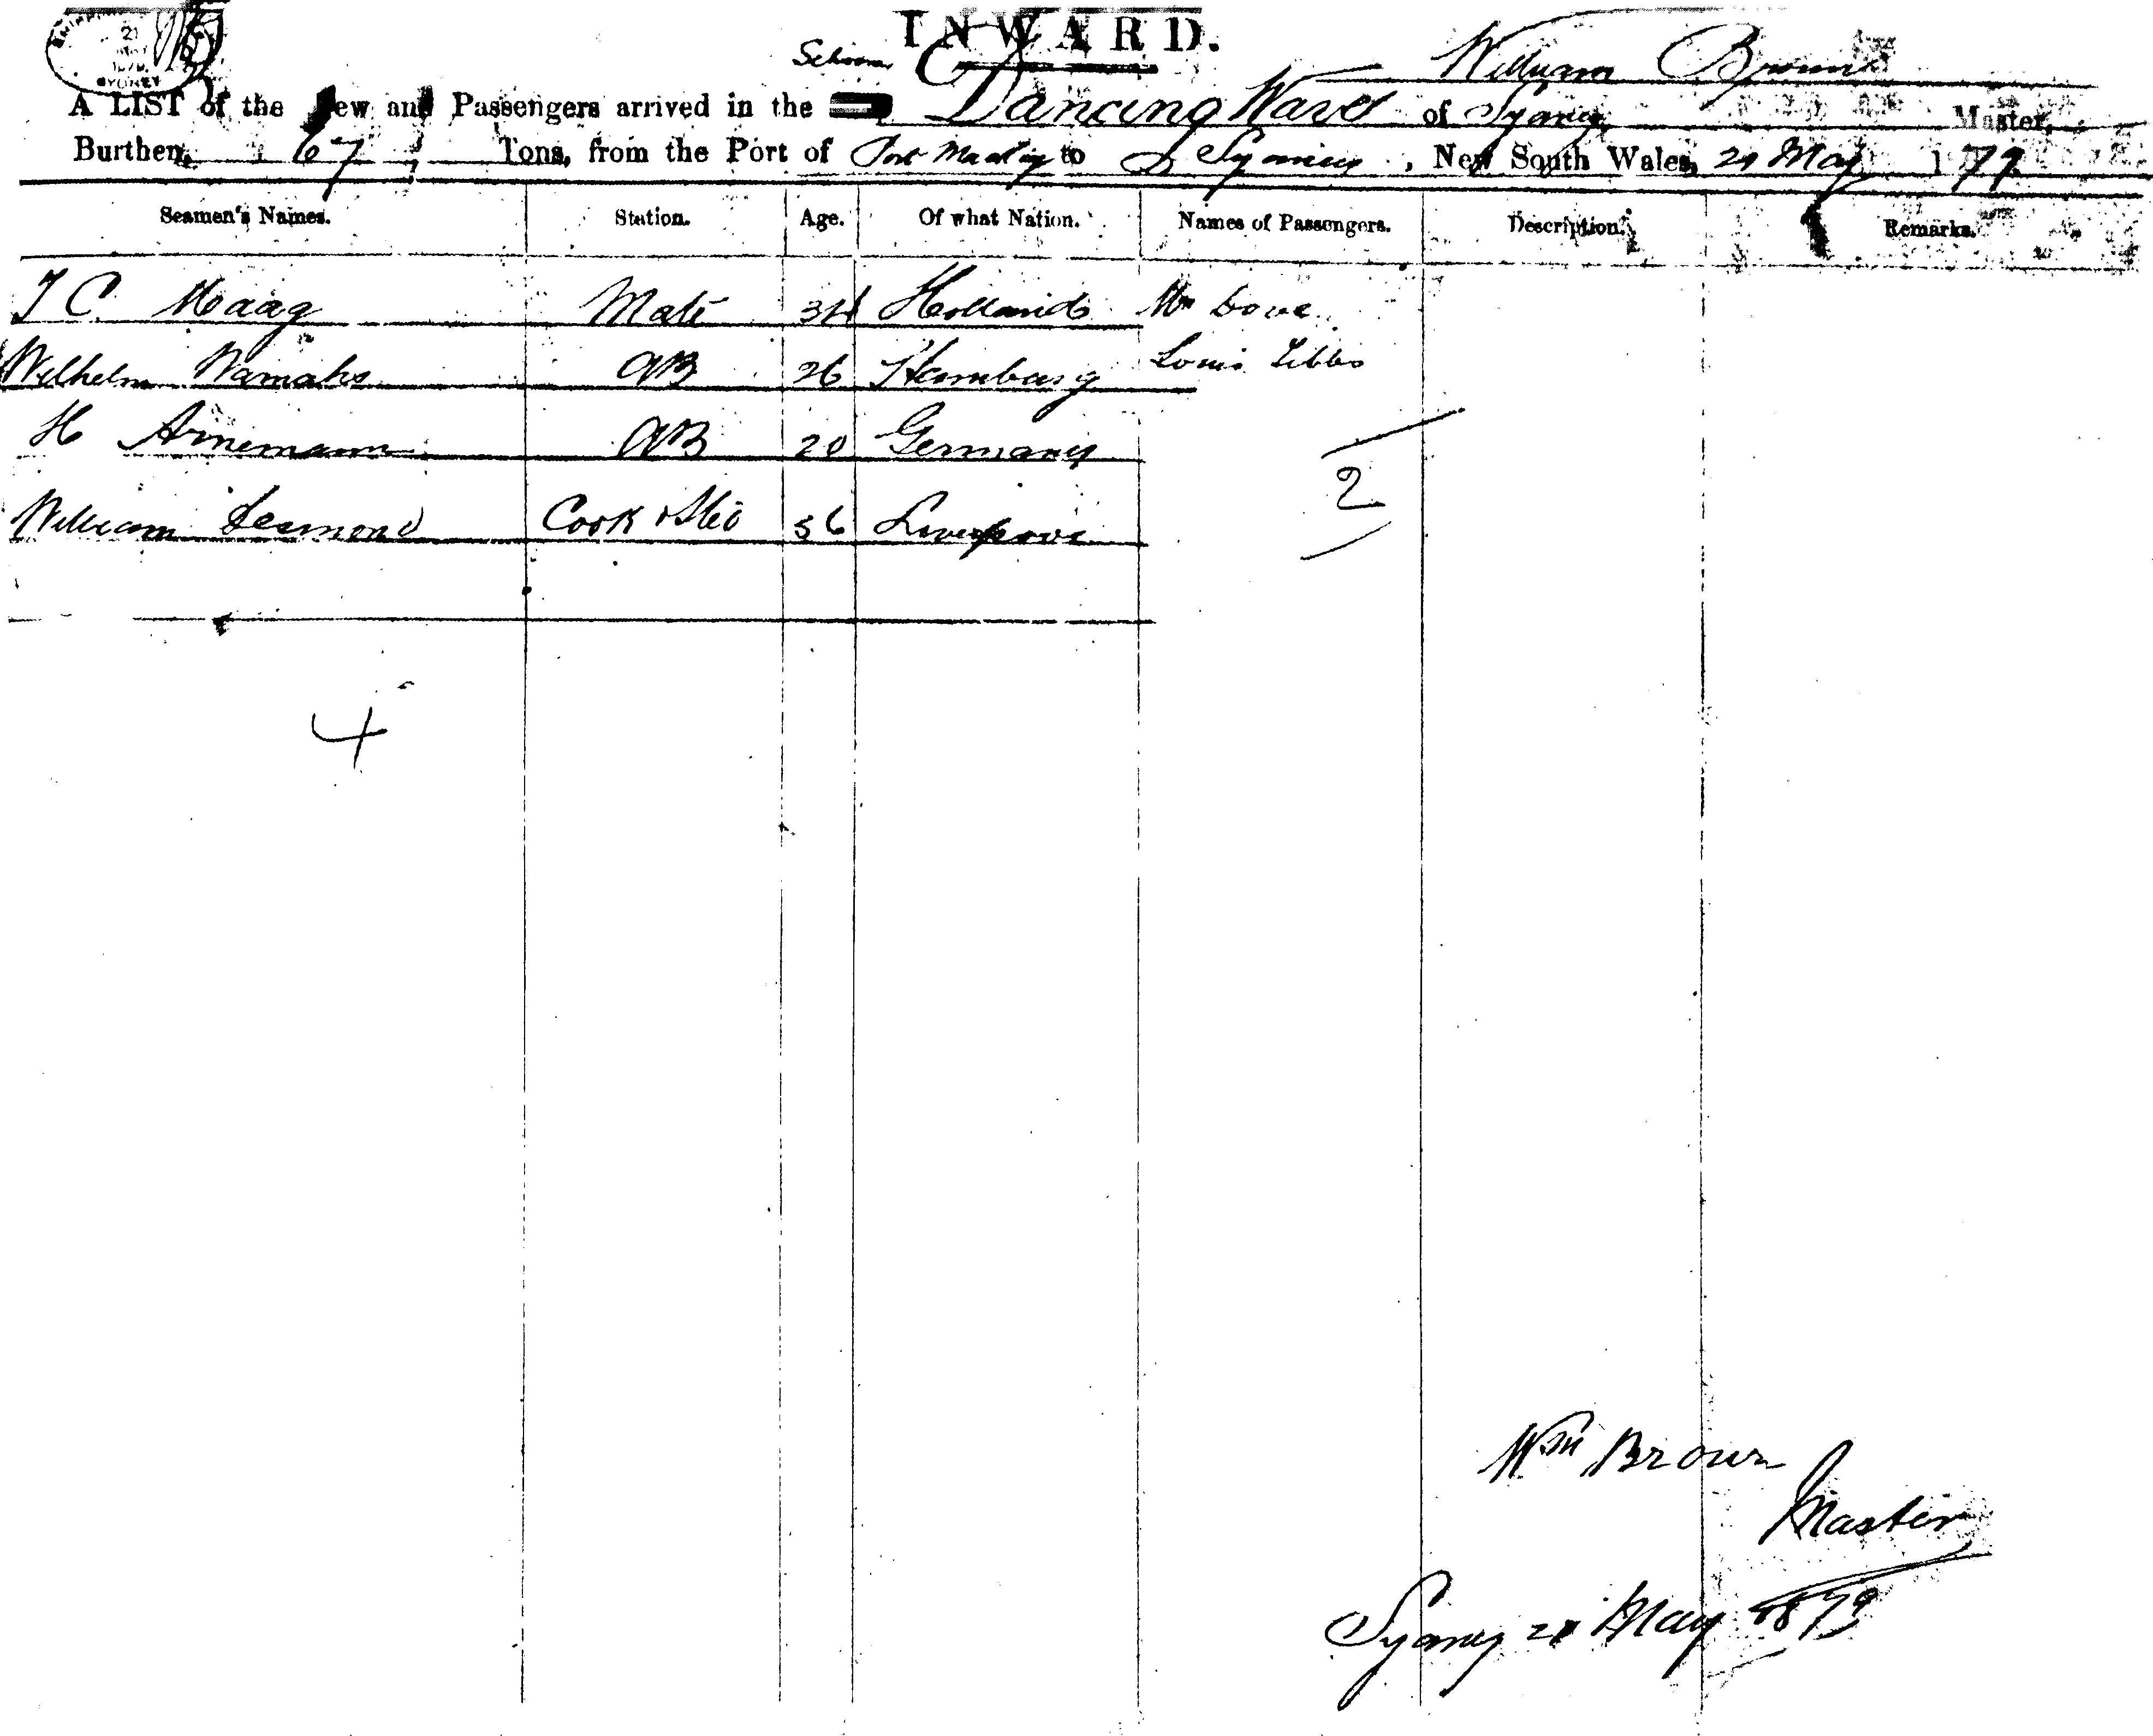 21
SYDNEY
INWARD.
Schooner
William Brown
A LIST of the Crew and Passengers arrived in the Dancing Wave of Sydney Master,
Burthen, 67 Tons, from the Port of Port Mackay to Sydney, New South Wales, 21 May 1879
Seamen's Names. Station. Age. Of what Nation. Names of Passengers. Description. Remarks.
J C Haag Mate 34 Holland Mr Dove
Wilhelm AB 26 Hamburg Louis Tibbs
H Arnemann AB 20 Germany
William Desmond Cook & Std 36 Liverpool
2
4
Wm Brown
Master
Sydney 21 May 1879